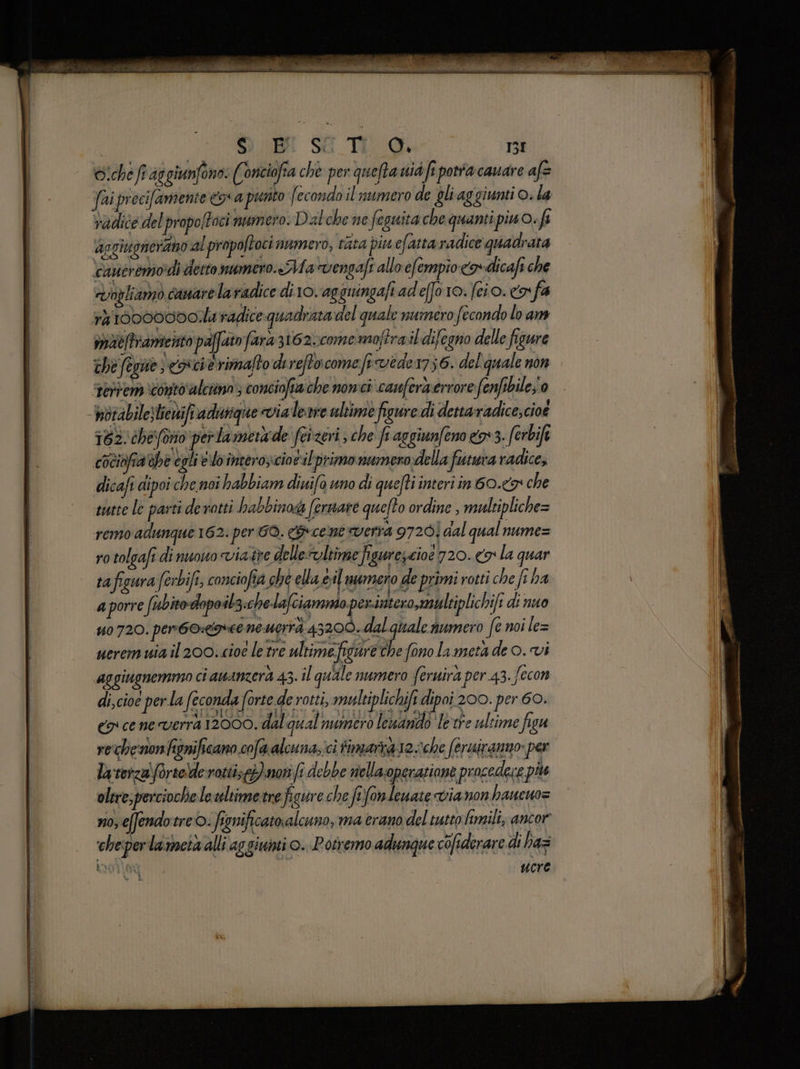 S E S T O. 131
o. che si aggiunsono. Conciosia che per questa uia si potrà cauare as=
sai precisamente & a punto secondo il numero de gli aggiunti o. la
radice del propostoci numero. Dal che ne seguita che quanti piu o. si
aggiugneranno al propostoci numero, tāta piu esatta radice quadrata
caueremo di detto numero. Ma vengasi allo esempio & dicasi che
vogliamo cauare la radice di 10. aggiungasi ad esso 10. sei o. & fa
rà 10000000. la radice quadrata del quale numero secondo lo am
maestramento passato sara 3162. come mostra il disegno delle figure
che segue, & ci è rimasto di resto come si vede 1756. del quale non
terrem conto alcuno, conciosia che non ci causerà errore sensibile, o
notabile, lieuisi adunque via le tre ultime figure di detta radice, cioè
162. che sono per la metà de sei zeri, che si aggiunseno & 3. serbisi
cōciosia che egli è lo intero, cioè il primo numero della futura radice,
dicasi dipoi che noi habbiam diuiso uno di questi interi in 60. & che
tutte le parti de rotti habbino à seruare questo ordine, multipliche=
remo adunque 162. per 60. & ce ne verrà 9720, dal qual nume=
ro tolgasi di nuouo via tre delle vltime figure, cioè 720. & la quar
ta figura serbisi, conciosia che ella è il numero de primi rotti che si ha
a porre subito dopo il 3. che lasciammo per intero, multiplichisi di nuo
uo 720. per 60. & ce ne uerrà 43200. dal quale numero se noi le=
uerem uia il 200. cioè le tre ultime figure che sono la metà de o. vi
aggiugnemmo ci auanzerà 43. il quale numero seruirà per 43. secon
di, cioè per la seconda sorte de rotti, multiplichisi dipoi 200. per 60.
& ce ne verrà 12000. dal qual numero leuando le tre ultime figu
re che non significano cosa alcuna, ci rimarrà 12. che seruiranno per
la terza sorte de rotti, & non si debbe nella operatione procedere piu
oltre, percioche le ultime tre figure che si son leuate via non haueuo=
no, essendo tre o. significato alcuno, ma erano del tutto simili, ancor
che per la metà alli aggiunti o. Potremo adunque cōsiderare di ha=
uere